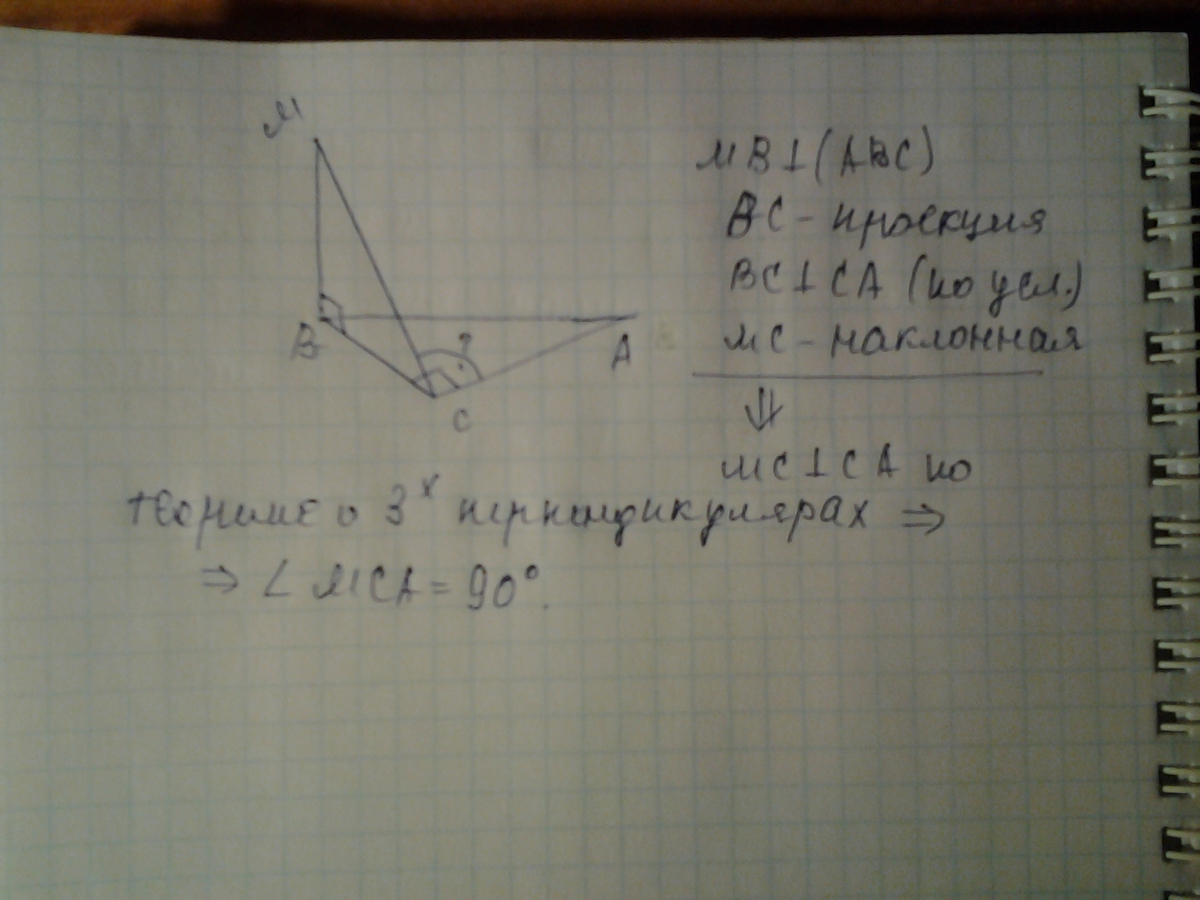 M
B
A
C
?
MB⊥(ABC)
BC - проекция
BC⊥CA (по усл.)
MC - наклонная
⇓
MC⊥CA по
теореме о 3ˣ перпендикулярах ⇒
⇒ ∠MCA = 90°.